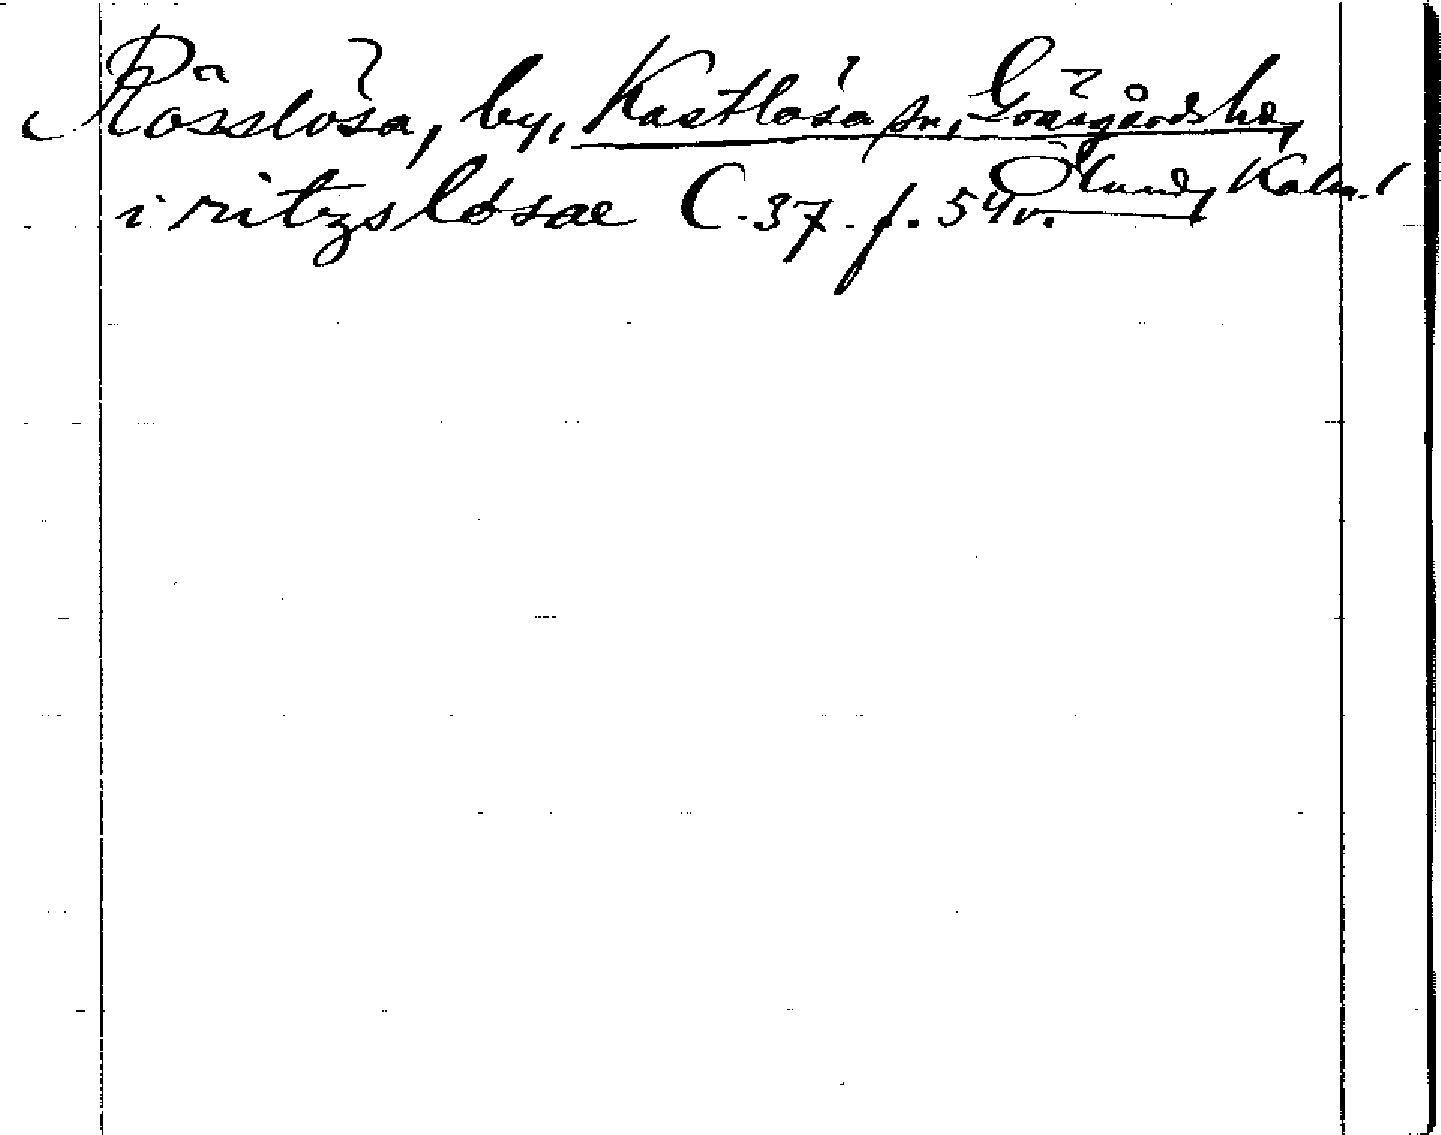 Rösslösa, by, Kastlösa sn, Gräsgårds hd,
Öland, Kalm. l
i ritzslösae C 37 f. 54v.